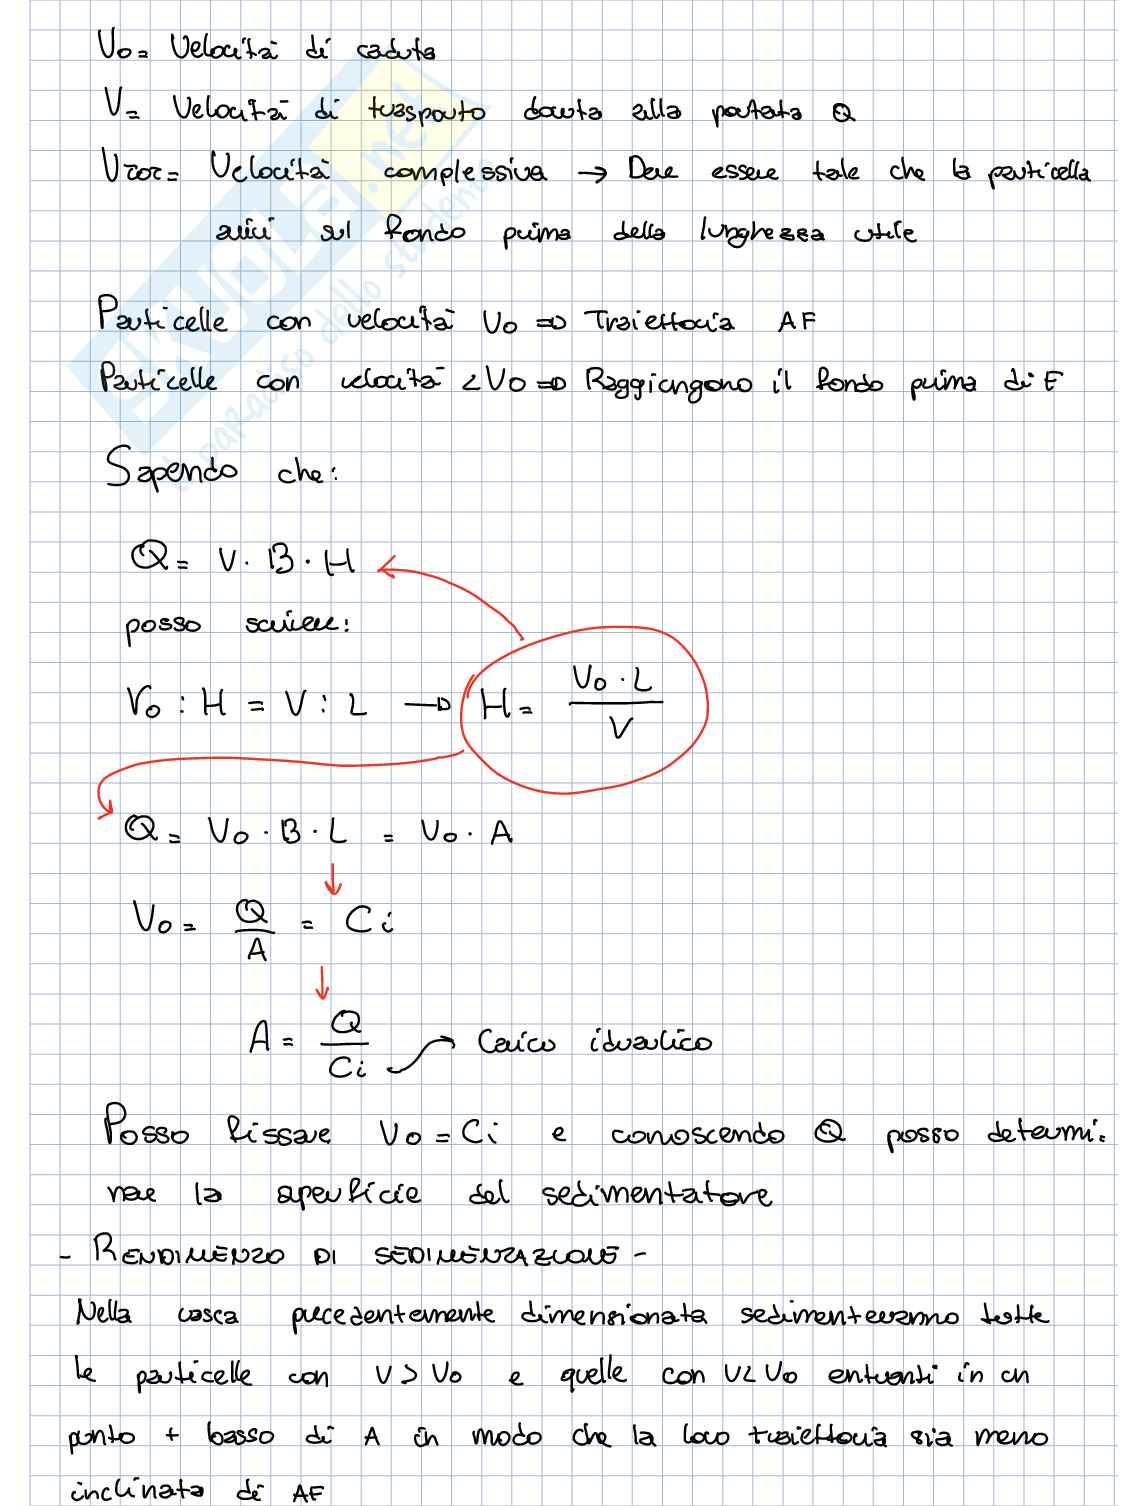 V₀= Velocità di caduta
V= Velocità di trasporto dovuta alla portata Q
VTOT= Velocità complessiva → Deve essere tale che la particella
arrivi sul fondo prima della lunghezza utile
Particelle con velocità V₀ ⇒ Traiettoria AF
Particelle con velocità <V₀ ⇒ Raggiungono il fondo prima di F
Sapendo che:
Q= V · B · H
posso scrivere:
V₀ : H = V : L → H= V₀ · L / V
Q= V₀ · B · L = V₀ · A
V₀= Q/A = Ci
A= Q/Ci → Carico idraulico
Posso fissare V₀=Ci e conoscendo Q posso determi-
nare la superficie del sedimentatore
- RENDIMENZO DI SEDIMENZAZIONE -
Nella vasca precedentemente dimensionata sedimenteranno tutte
le particelle con V>V₀ e quelle con V<V₀ entranti in un
punto + basso di A in modo che la loro traiettoria sia meno
inclinata di AF
SKUOLA.net
il paradiso dello studente